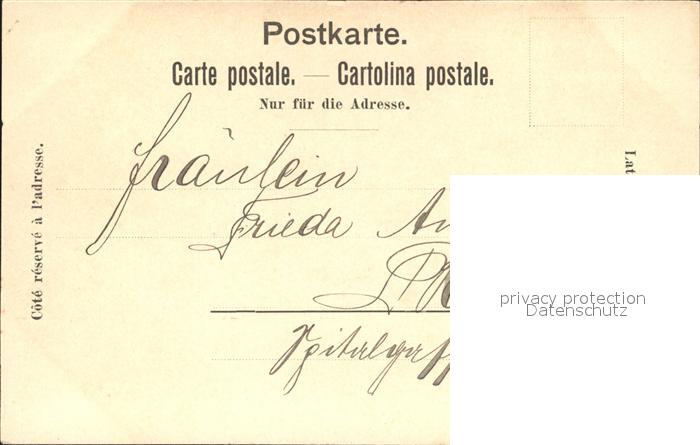 Postkarte.
Carte postale. — Cartolina postale.
Nur für die Adresse.
Côté réservé à l'adresse.
Fräulein
Frieda
privacy protection
Datenschutz